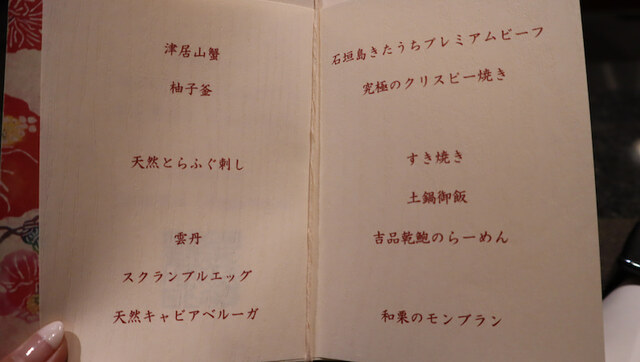 津居山蟹
柚子釜
天然とらふぐ刺し
雲丹
スクランブルエッグ
天然キャビアベルーガ
石垣島きたうちプレミアムビーフ
究極のクリスピー焼き
すき焼き
土鍋御飯
吉品乾鮑のらーめん
和栗のモンブラン